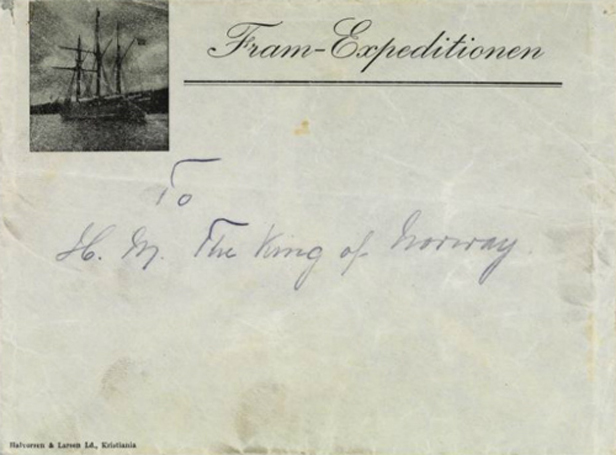 Fram-Expeditionen
To
H. M. The King of Norway.
Halvorsen & Larsen Ld., Kristiania